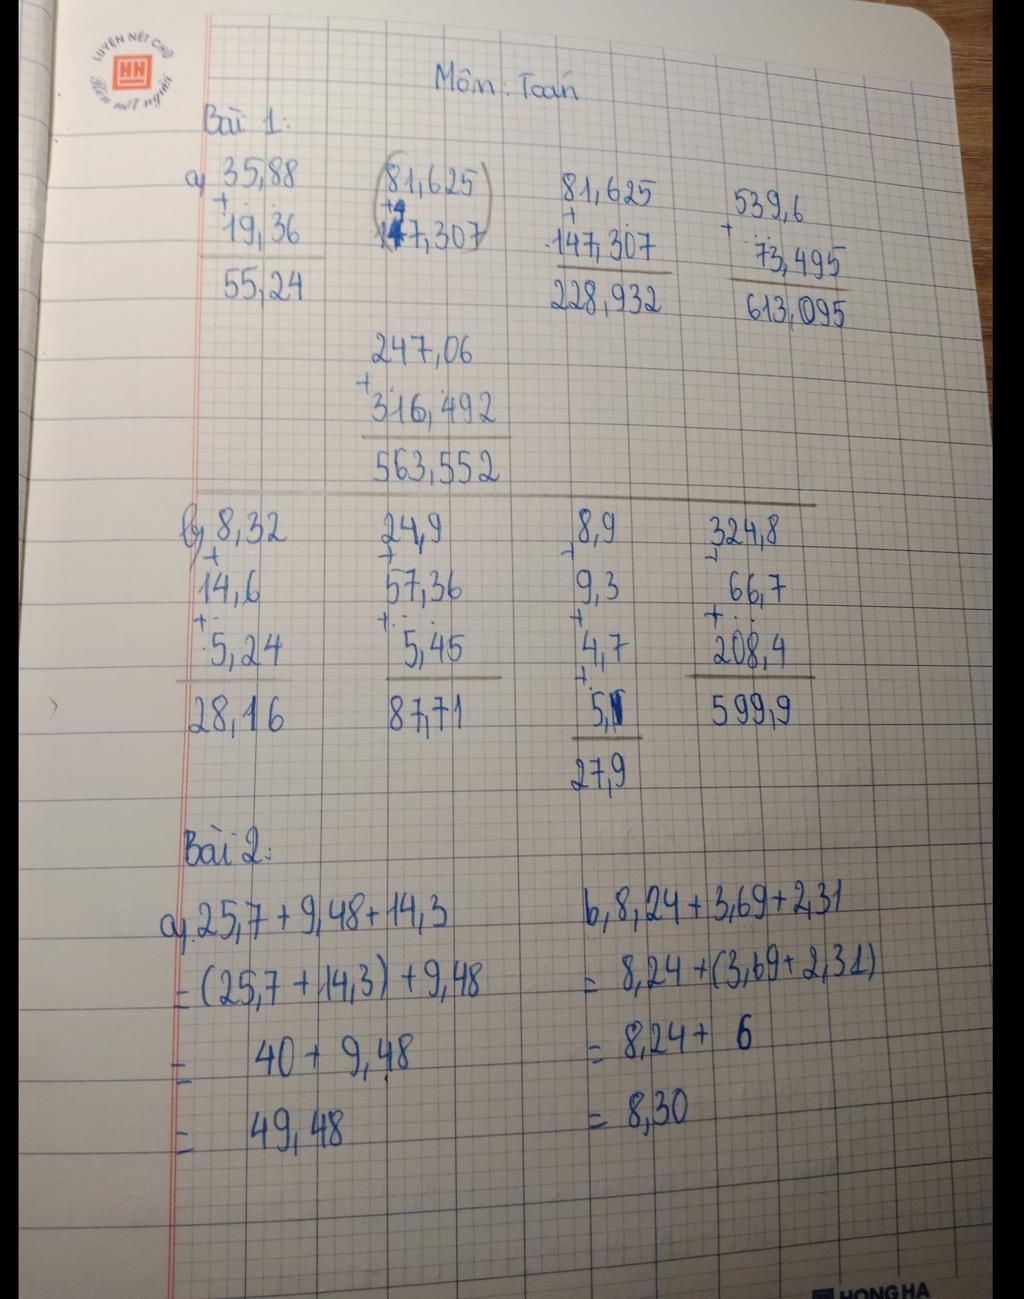 LUYỆN NÉT CHỮ
HN
Rèn nết người
Môn: Toán
Bài 1:
a, 35,88 81,625 81,625 539,6
+ + + +
19,36 147,307 147,307 73,495
55,24 228,932 613,095
247,06
+
316,492
563,552
b, 8,32 24,9 8,9 324,8
+ + + +
14,6 57,36 9,3 66,7
+ + + +
5,24 5,45 4,7 208,4
+
28,16 87,71 5,1 599,9
27,9
Bài 2:
a, 25,7 + 9,48 + 14,3 b, 8,24 + 3,69 + 2,31
= (25,7 + 14,3) + 9,48 = 8,24 + (3,69 + 2,31)
= 40 + 9,48 = 8,24 + 6
= 49,48 = 8,30
HONG HA